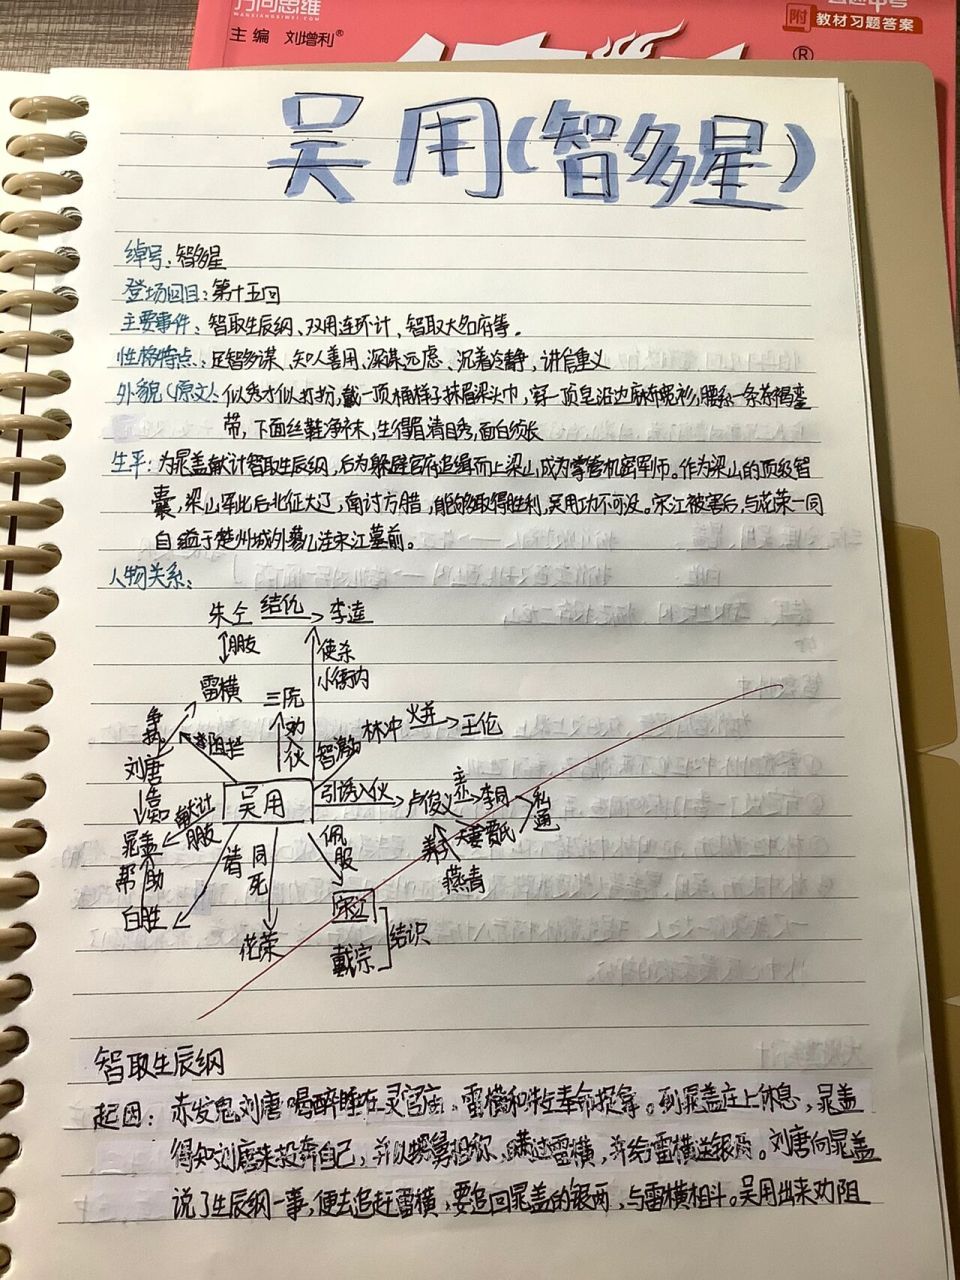 万向思维
WANXIANGSIWEI
主 编 刘增利®
附
教材习题答案
®
吴用(智多星)
绰号：智多星
登场回目：第十五回
主要事件：智取生辰纲、双用连环计、智取大名府等。
性格特点：足智多谋、知人善用，深谋远虑、沉着冷静，讲信重义
外貌(原文)：似秀才似打扮，戴一顶桶样子抹眉梁头巾，穿一顶皂沿边麻布宽衫，腰系一条茶褐銮
带，下面丝鞋净袜，生得眉清目秀，面白须长
生平：为晁盖献计智取生辰纲，后为躲避官府追缉而上梁山，成为掌管机密军师。作为梁山的顶级智
囊，梁山军此后北征大辽，南讨方腊，能够取得胜利，吴用功不可没。宋江被害后，与花荣一同
自缢于楚州城外蓼儿洼宋江墓前。
人物关系：
朱仝 结仇 李逵
朋友
使杀
小衙内
雷横
三阮
劝
伙
智激
林冲 火并 王伦
争
阻拦
刘唐
告
知
吴用
引诱入伙
卢俊义
李固
私
通
夫妻 贾氏
燕青
献计
朋友
晁盖
帮助
白胜
请
同
死
花荣
佩
服
宋江
戴宗
结识
智取生辰纲
起因：赤发鬼刘唐喝醉睡在灵官庙，雷横和朱仝奉命捉拿。到晁盖庄上休息，晁盖
得知刘唐来投奔自己，并以甥舅相称，瞒过雷横，并给雷横送银两。刘唐向晁盖
说了生辰纲一事，便去追赶雷横，要追回晁盖的银两，与雷横相斗。吴用出来劝阻